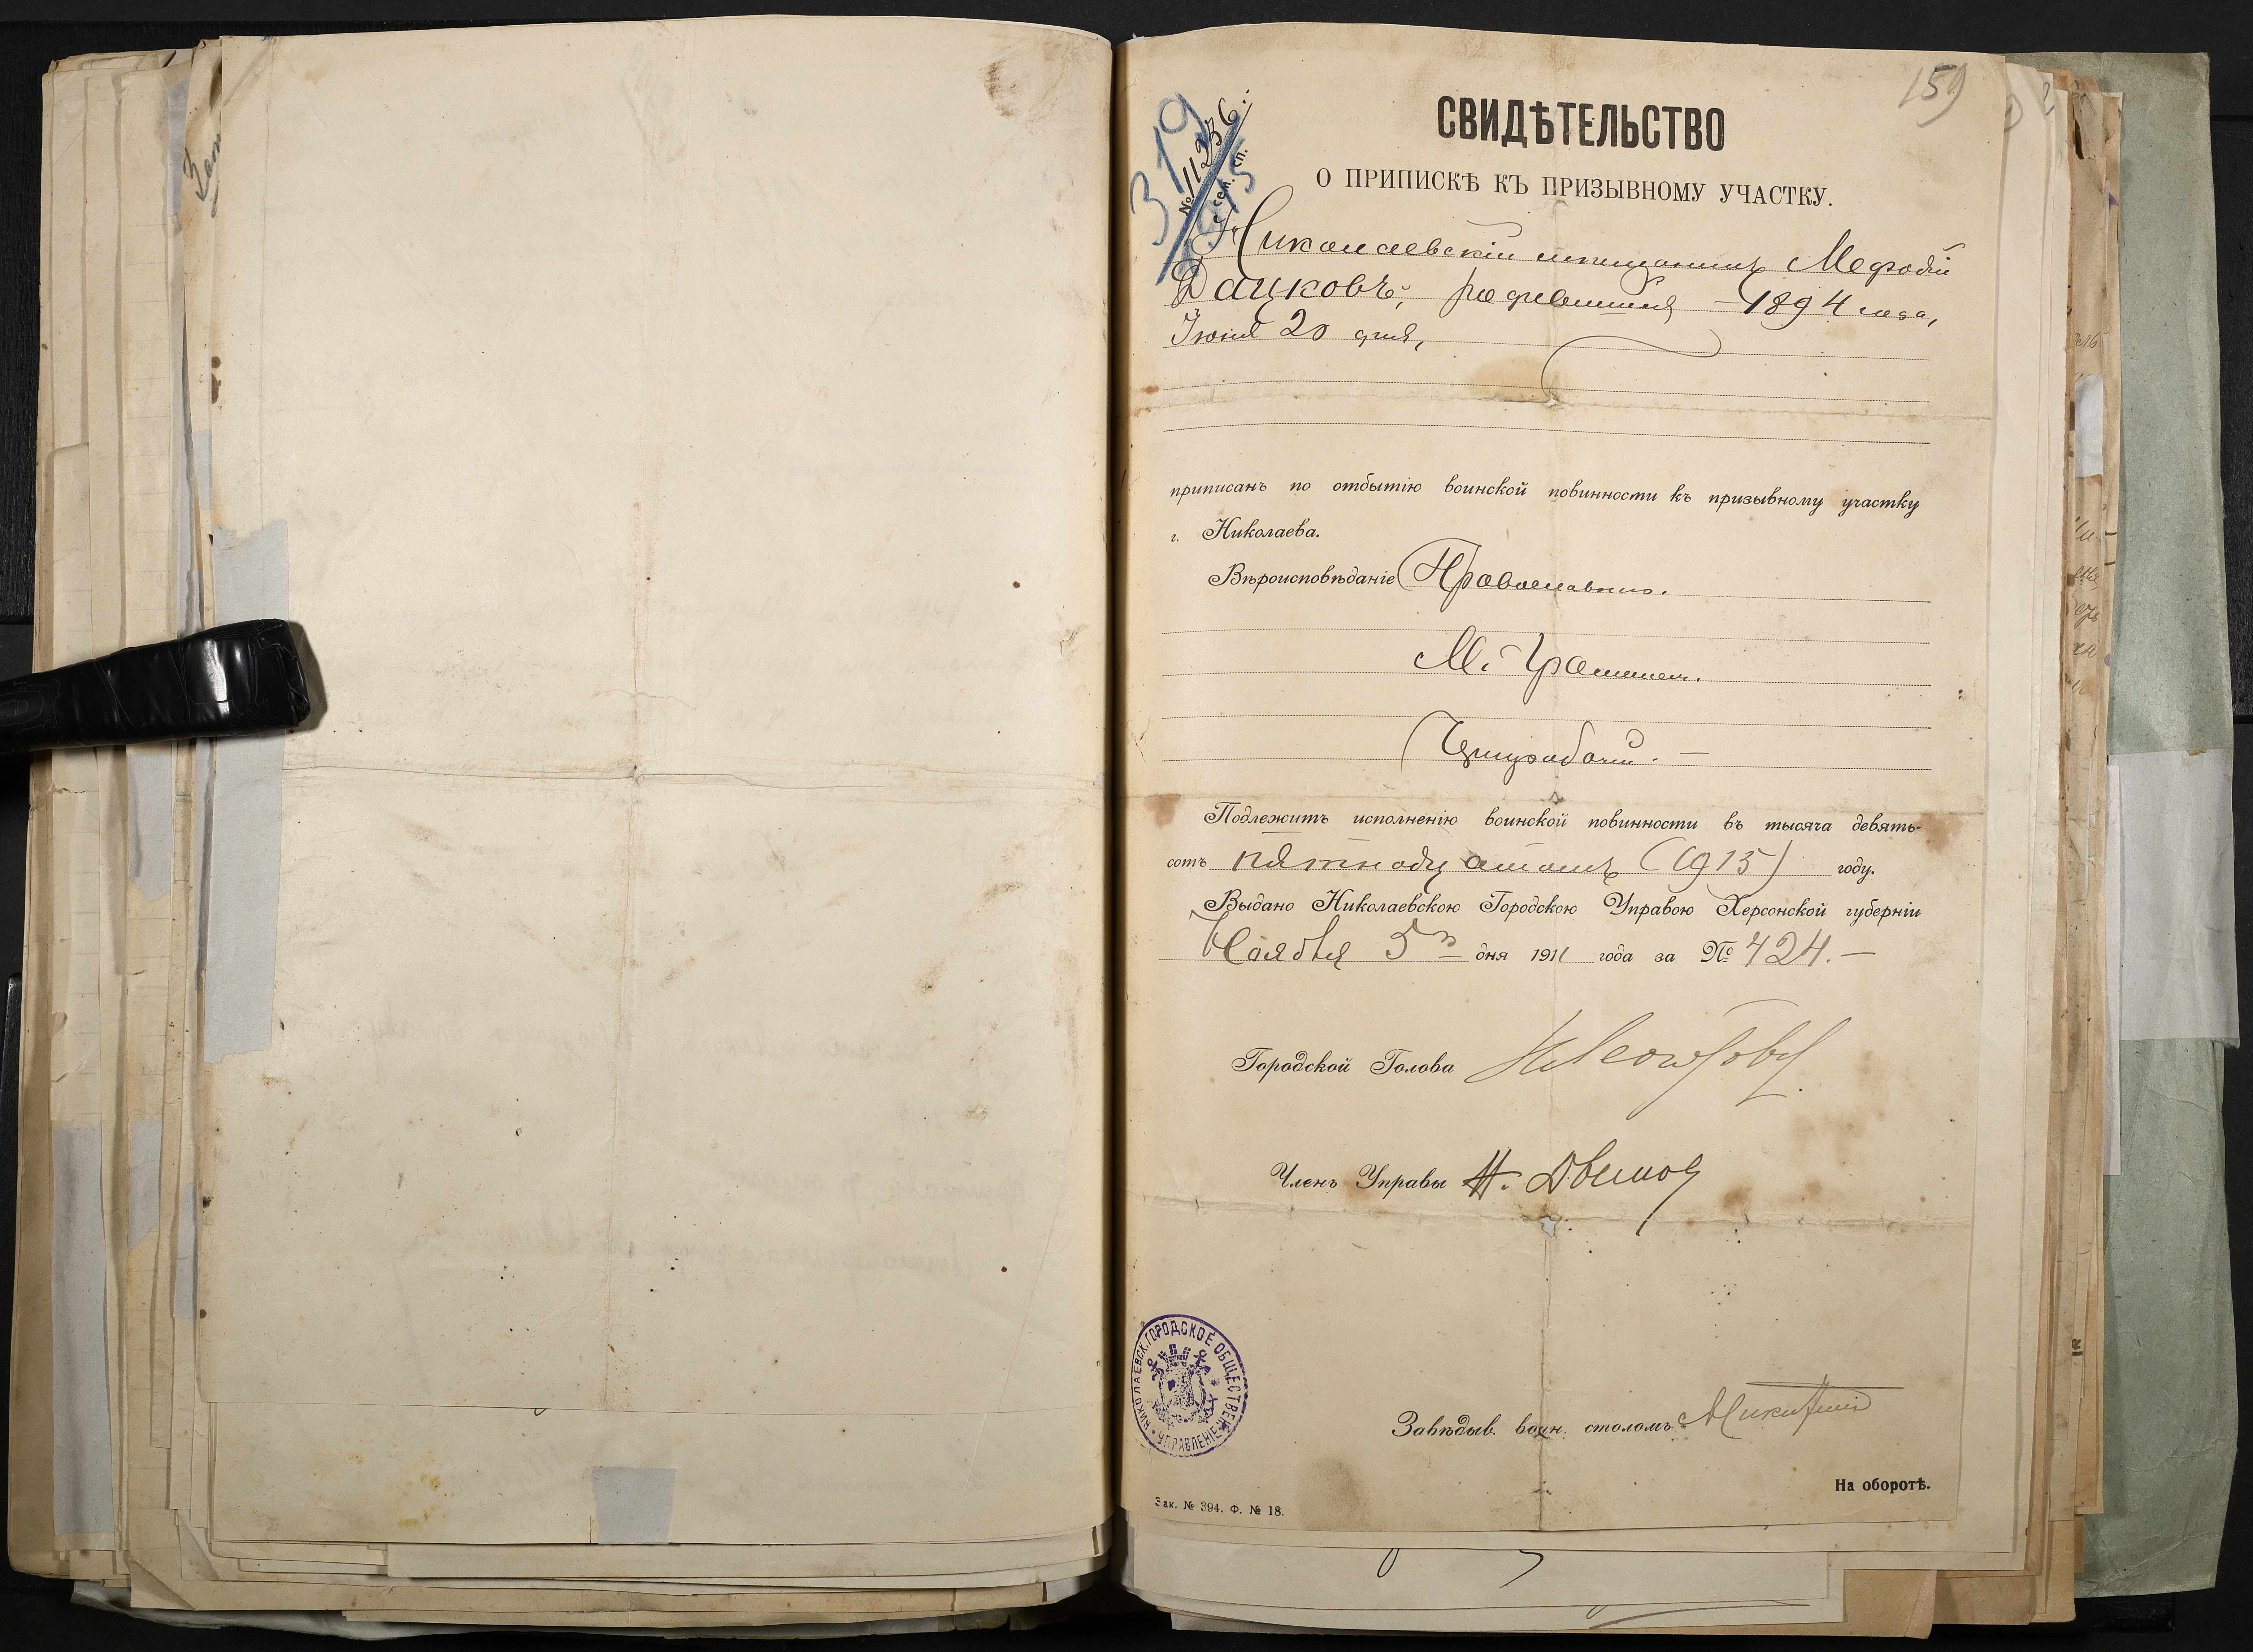 159
319
№ 11236.
с сем. сп.
СВИДѢТЕЛЬСТВО
О ПРИПИСКѢ КЪ ПРИЗЫВНОМУ УЧАСТКУ.
Николаевскій мѣщанинъ Мефодій
Дацковъ, родившійся 1894 года,
Іюня 20 дня,
приписанъ по отбытію воинской повинности къ призывному участку
г. Николаева.
Вѣроисповѣданіе Православнаго.
М. Грамотен.
Чернорабочій. —
Подлежитъ исполненію воинской повинности въ тысяча девять-
сотъ пятнадцатомъ (1915) году.
Выдано Николаевскою Городскою Управою Херсонской губерніи
Ноября 5 дня 1911 года за № 424. —
Городской Голова
Членъ Управы Н.
НИКОЛАЕВСК. ГОРОДСКОЕ ОБЩЕСТВЕН. УПРАВЛЕНІЕ
Завѣдыв. воин. столомъ
На оборотѣ.
Зак. № 394. Ф. № 18.